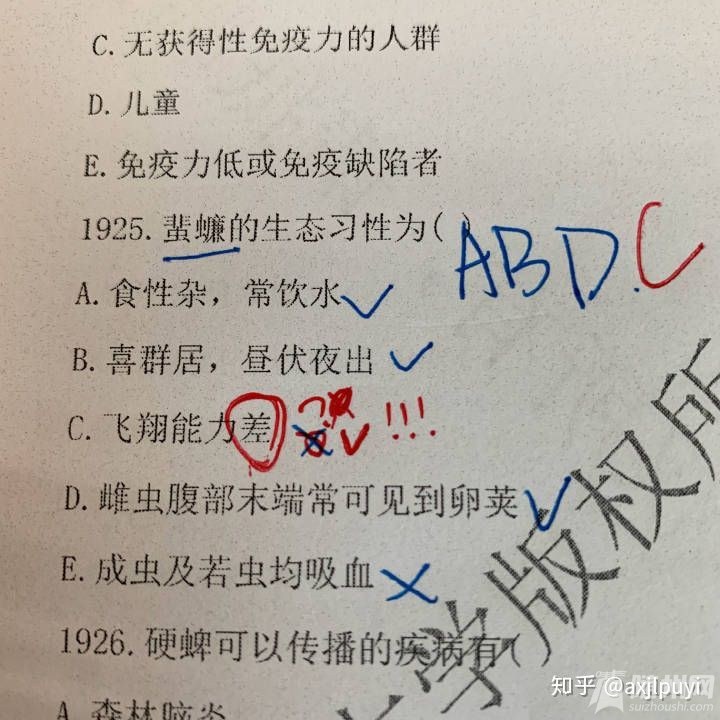 C. 无获得性免疫力的人群
D. 儿童
E. 免疫力低或免疫缺陷者
1925. 蜚蠊的生态习性为( ) ABD.C
A. 食性杂，常饮水 ✓
B. 喜群居，昼伏夜出 ✓
C. 飞翔能力差 ✓ !!!
D. 雌虫腹部末端常可见到卵荚 ✓
E. 成虫及若虫均吸血 ✗
1926. 硬蜱可以传播的疾病有( )
A. 森林脑炎
学版权所
知乎 @axjlpuyi
随州网
suizhoushi.com